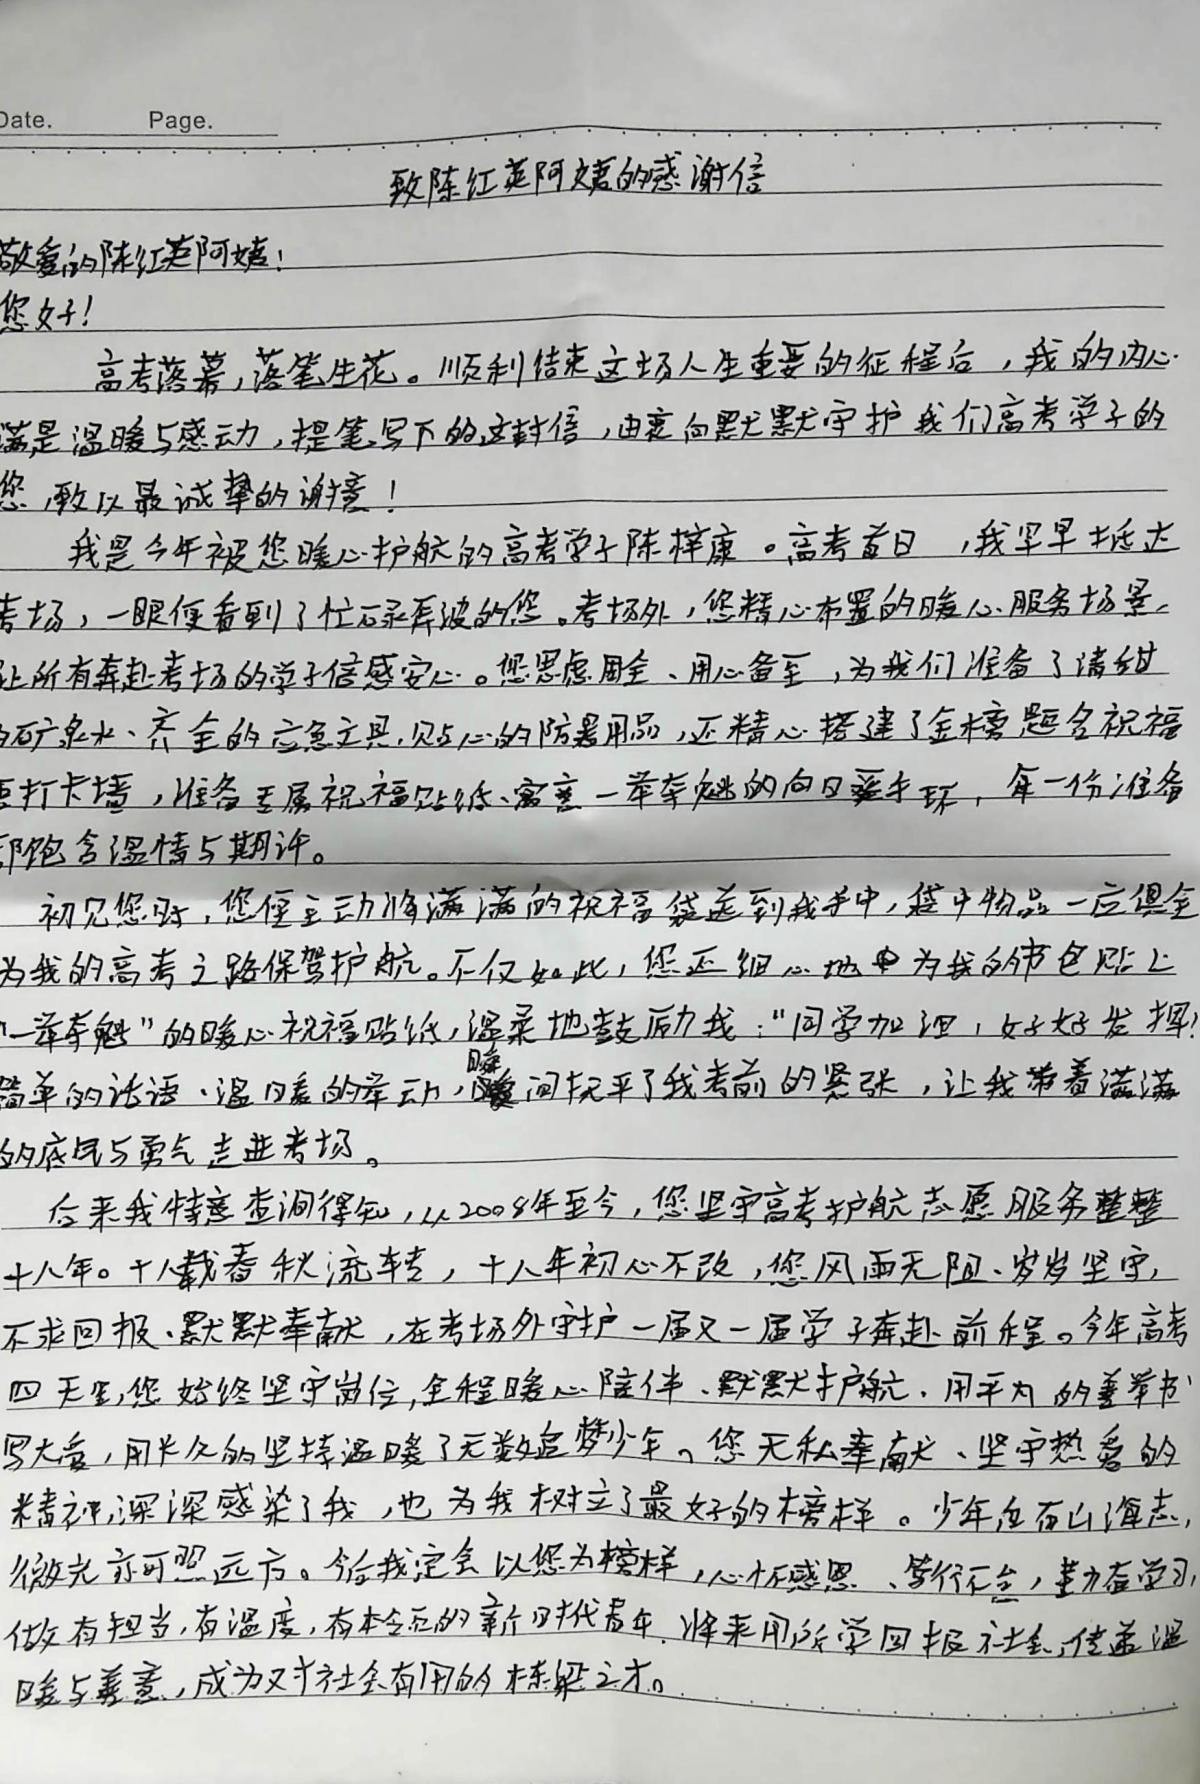 Date. Page.
致陈红英阿姨的感谢信
敬爱的陈红英阿姨！
您好！
高考落幕，落笔生花。顺利结束这场人生重要的征程后，我的内心
满是温暖与感动，提笔写下的这封信，由衷向默默守护我们高考学子的
您，致以最诚挚的谢意！
我是今年被您暖心护航的高考学子陈梓康。高考首日，我早早抵达
考场，一眼便看到了忙碌奔波的您。考场外，您精心布置的暖心服务场景，
让所有奔赴考场的学子倍感安心。您思虑周全、用心备至，为我们准备了清甜
的矿泉水、齐全的应急文具、贴心的防暑用品，还精心搭建了金榜题名祝福
打卡墙，准备专属祝福贴纸、寓意一举夺魁的向日葵手环，每一份准备
都饱含温情与期许。
初见您时，您便主动将满满的祝福袋送到我手中，袋中物品一应俱全
为我的高考之路保驾护航。不仅如此，您还细心地为我的书包贴上
“一举夺魁”的暖心祝福贴纸，温柔地鼓励我：“同学加油，好好发挥！
简单的话语、温暖的举动，瞬间抚平了我考前的紧张，让我带着满满
的底气与勇气走进考场。
后来我特意查询得知，从2008年至今，您坚守高考护航志愿服务整整
十八年。十八载春秋流转，十八年初心不改，您风雨无阻、岁岁坚守，
不求回报、默默奉献，在考场外守护一届又一届学子奔赴前程。今年高考
四天里，您始终坚守岗位，全程暖心陪伴、默默护航，用平凡的善举书
写大爱，用长久的坚持温暖了无数追梦少年。您无私奉献、坚守热爱的
精神，深深感染了我，也为我树立了最好的榜样。少年应有山海志，
微光亦可照远方。今后我定会以您为榜样，心怀感恩、笃行不怠，努力在学习，
做有担当，有温度，有本领的新时代青年，将来用所学回报社会，传递温
暖与善意，成为对社会有用的栋梁之才。